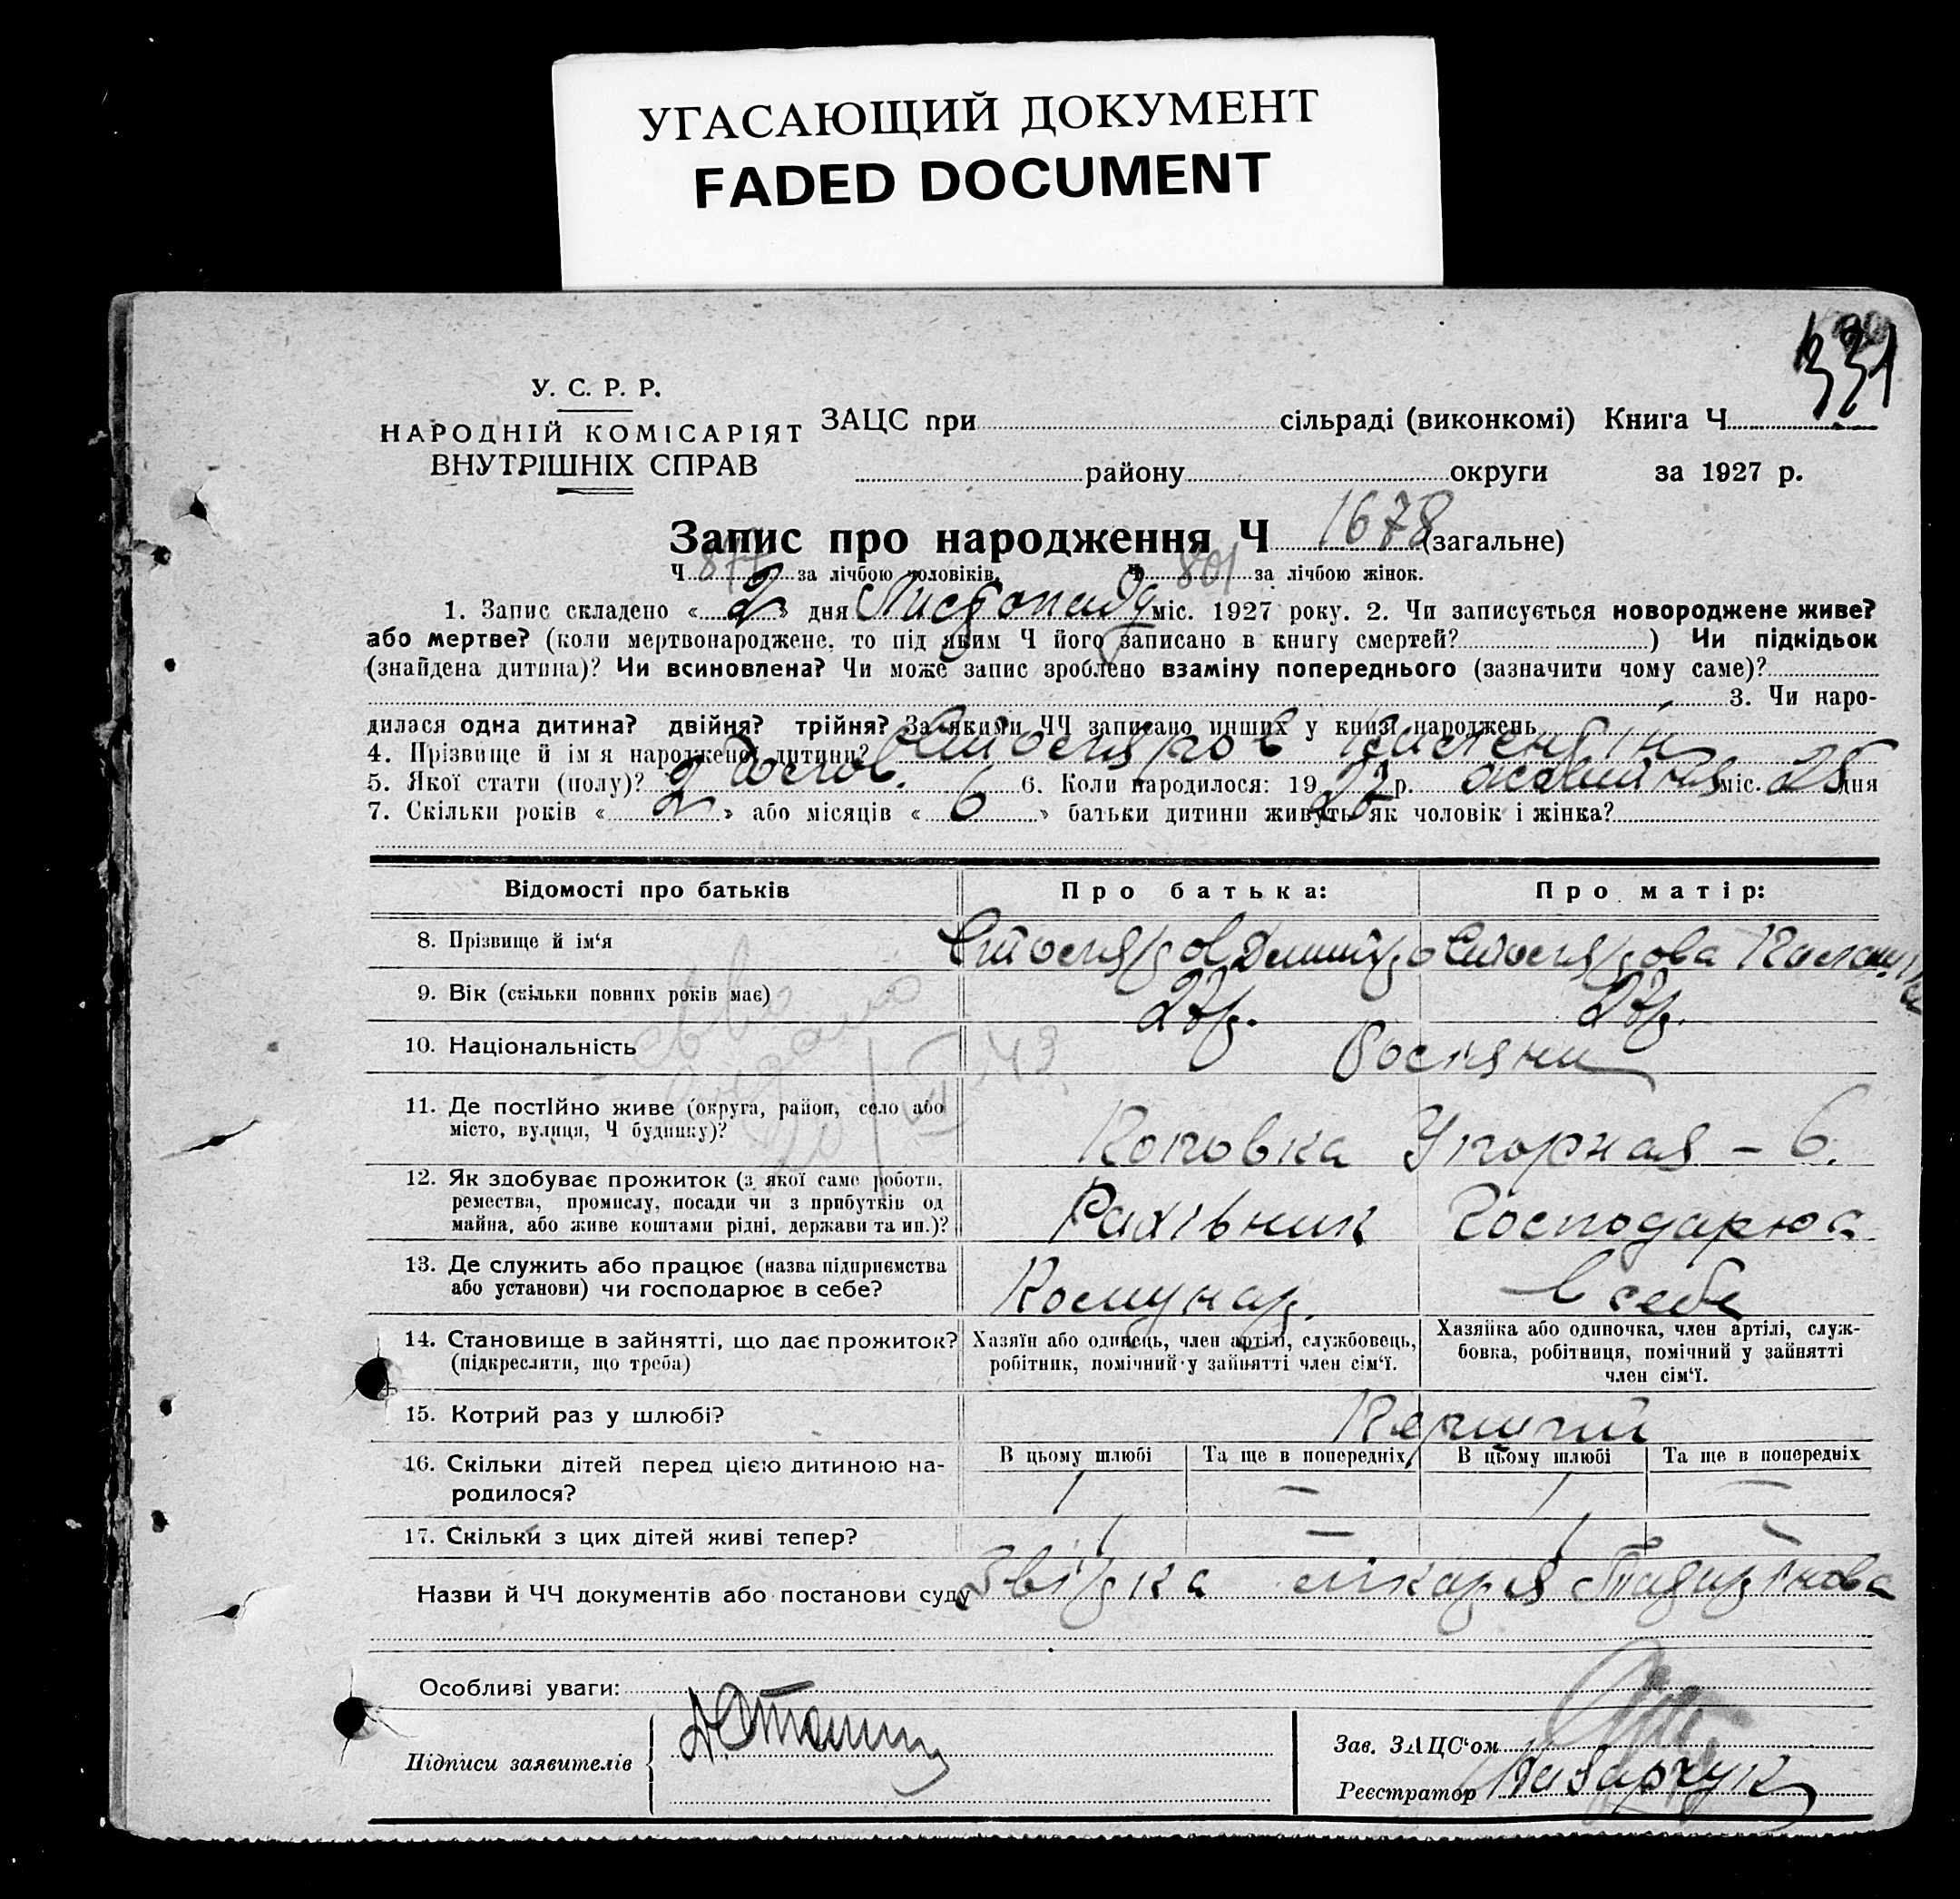 УГАСАЮЩИЙ ДОКУМЕНТ
FADED DOCUMENT
331
У. С. Р. Р.
НАРОДНІЙ КОМІСАРІЯТ
ВНУТРІШНІХ СПРАВ
ЗАЦС при сільраді (виконкомі) Книга Ч
району округи за 1927 р.
Запис про народження Ч 1678 (загальне)
Ч 877 за лічбою чоловіків. Ч 801 за лічбою жінок.
1. Запис складено « 2 » дня Листопаду міс. 1927 року. 2. Чи записується новороджене живе?
або мертве? (коли мертвонароджене, то під яким Ч його записано в книгу смертей? ) Чи підкідьок
(знайдена дитина)? Чи всиновлена? Чи може запис зроблено взаміну попереднього (зазначити чому саме)?
3. Чи наро-
дилася одна дитина? двійня? трійня? За якими ЧЧ записано инших у книзі народжень
4. Прізвище й ім'я народженої дитини? Столяров Костентін
5. Якої стати (полу)? чолов. 6. Коли народилося: 1927 р. жовтня міс. 25 дня
7. Скільки років « 2 » або місяців « 6 » батьки дитини живуть як чоловік і жінка?
Відомості про батьків
Про батька:
Про матір:
8. Прізвище й ім'я
Столяров Дмитро
Столярова
9. Вік (скільки повних років має)
27 р.
27 р.
10. Національність
Росіяни
11. Де постІйно живе (округа, район, село або
місто, вулиця, Ч будинку)?
Поповка Упорная – 6.
12. Як здобуває прожиток (з якої саме роботи,
ремества, промислу, посади чи з прибутків од
майна, або живе коштами рідні, держави та ин.)?
Рахівник
Господарює
13. Де служить або працює (назва підприємства
або установи) чи господарює в себе?
Комунар.
в себе
14. Становище в зайнятті, що дає прожиток?
(підкреслити, що треба)
Хазяїн або одинець, член артілі, службовець,
робітник, помічний у зайнятті член сім'ї.
Хазяйка або одиночка, член артілі, служ-
бовка, робітниця, помічний у зайнятті
член сім'ї.
15. Котрий раз у шлюбі?
Перший
16. Скільки дітей перед цією дитиною на-
родилося?
В цьому шлюбі
Та ще в попередніх
В цьому шлюбі
Та ще в попередніх
1 — 1 —
17. Скільки з цих дітей живі тепер?
1 — 1 —
Назви й ЧЧ документів або постанови суду Звідка лікаря
Особливі уваги:
Підписи заявителів
Зав. ЗАЦС'ом
Реєстратор